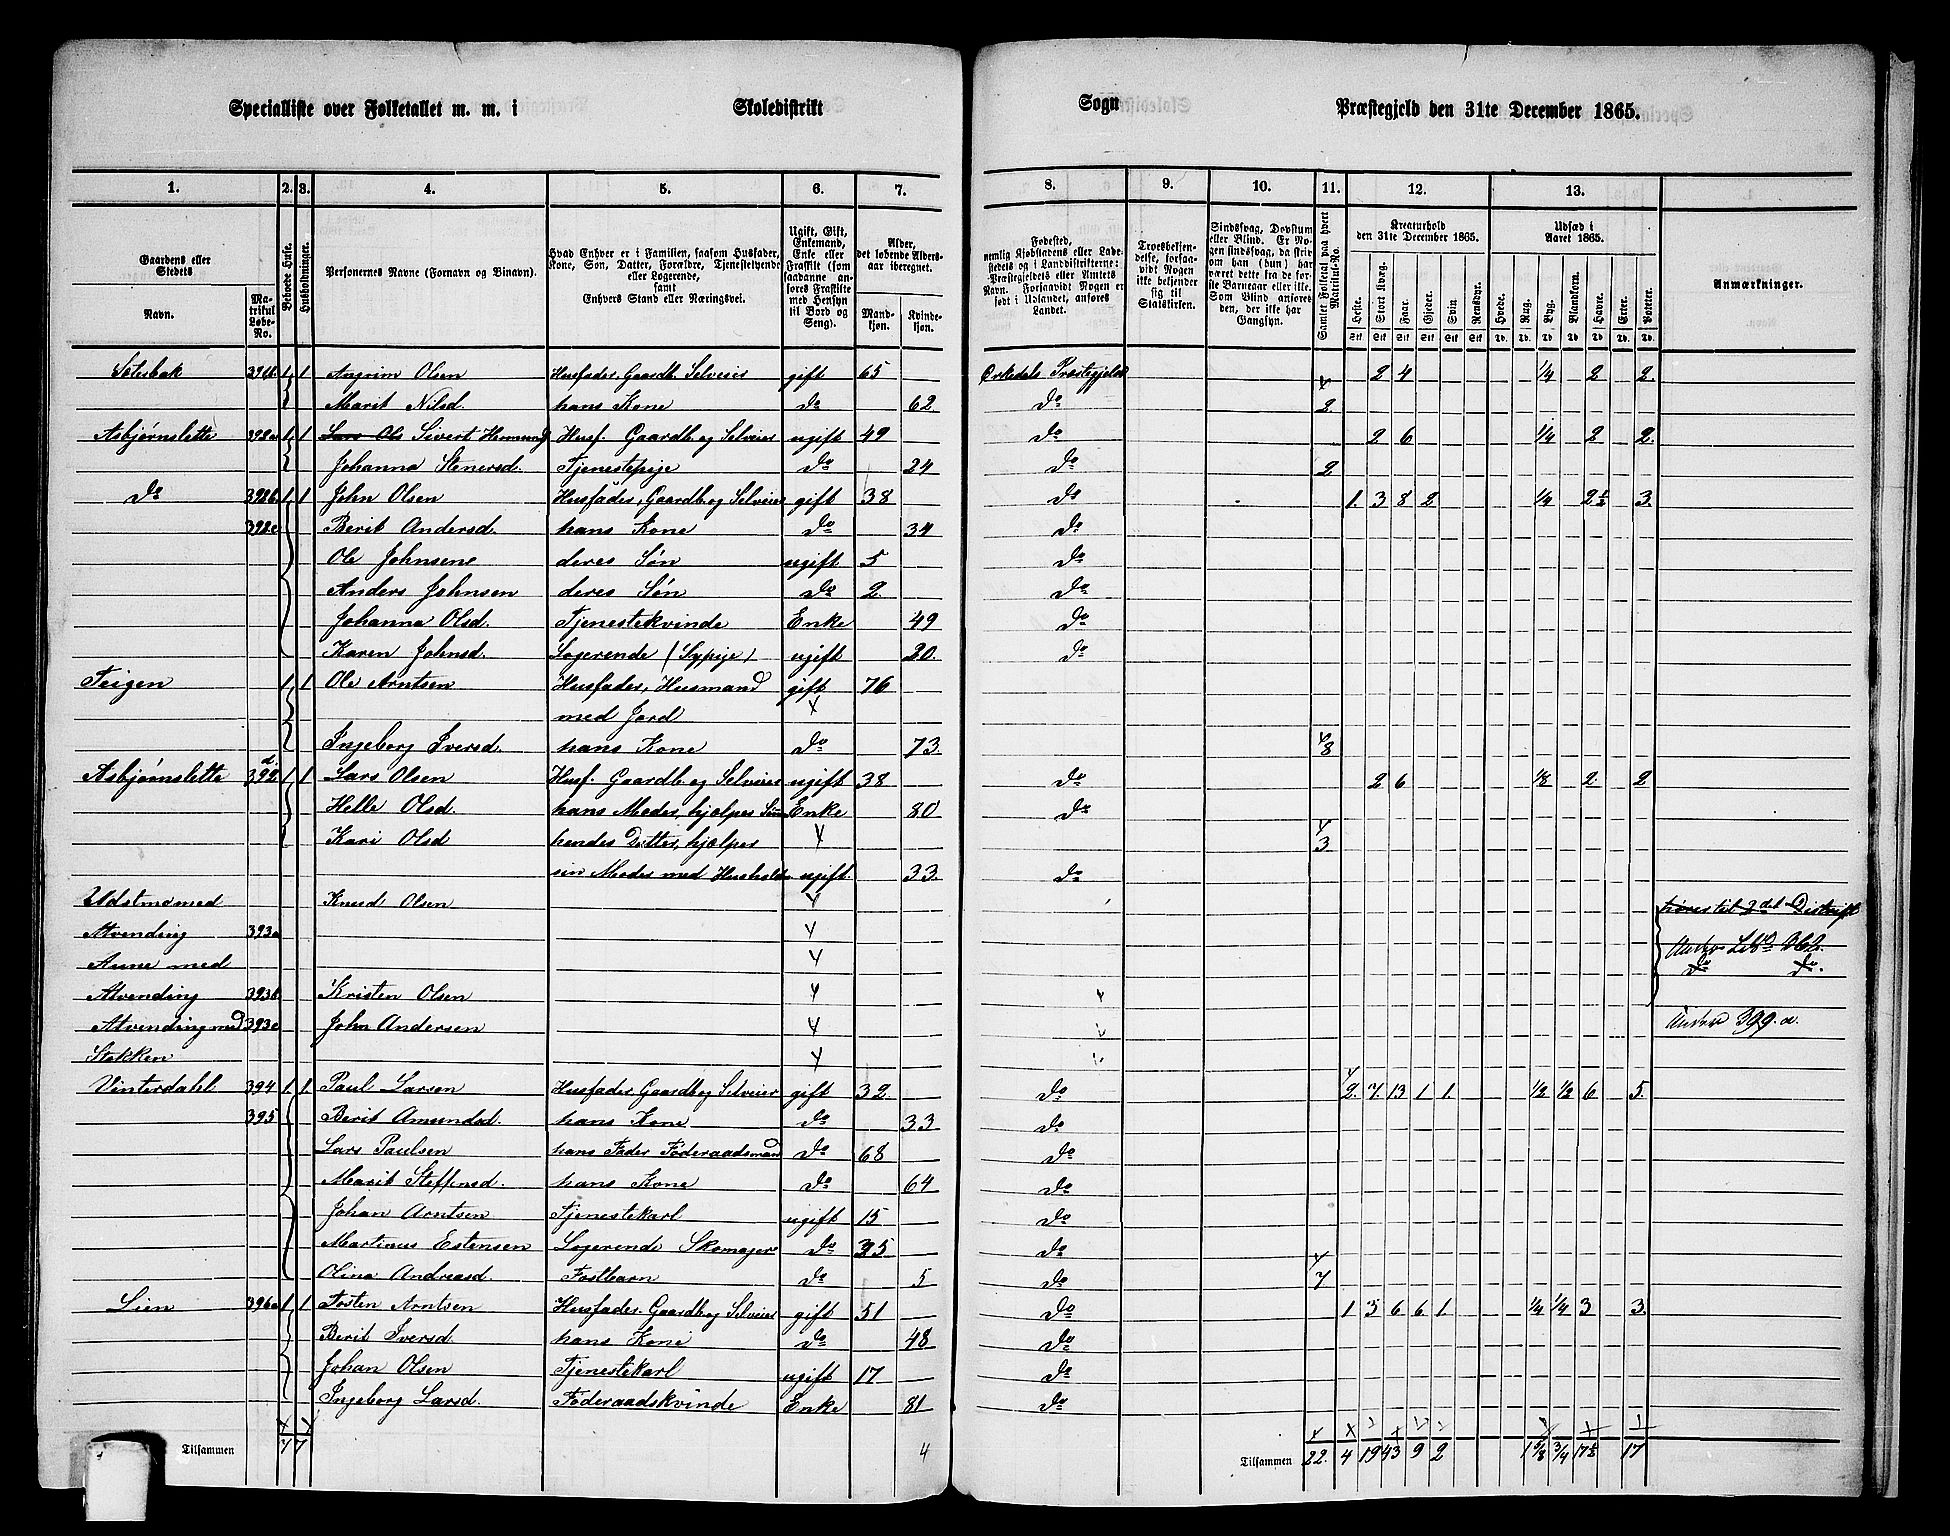 Specialliste over Folketallet m. m. i Skoledistrikt Sogn Præstegjeld den 31te December 1865.
1. 2. 3. 4. 5. 6. 7. 8. 9. 10. 11. 12. 13.
Gaardens eller Stedets Navn. Matrikul Løbe-No.
Beboede Huse.
Husholdninger.
Personernes Navne (Fornavn og Binavn).
Hvad Enhver er i Familien, saasom Husfader, Kone, Søn, Datter, Forældre, Tjenestetyende eller Logerende, samt Enhvers Stand eller Næringsvei.
Ugift, Gift, Enkemand, Enke eller Fraskilt (som saadanne anføres Fraskilte med Hensyn til Bord og Seng).
Alder, det løbende Aldersaar iberegnet. Mandkjøn. Kvindekjøn.
Fødested, nemlig Kjøbstadens eller Ladestedets og i Landdistrikterne: Præstegjeldets eller Amtets Navn. Forsaavidt Nogen er født i Udlandet, anføres Landet.
Troesbekjendelse, forsaavidt Nogen ikke bekjender sig til Statskirken.
Sindssvag, Døvstum eller Blind. Er Nogen sindssvag, da skrives om han (hun) har været dette fra de første Barneaar eller ikke. Som Blind anføres den, der ikke har Gangsyn.
Samlet Folketal paa hvert Matrikul-No.
Kreaturhold den 31te December 1865. Heste. Stort Kvæg. Faar. Gjeder. Svin. Rensdyr.
Udsæd i Aaret 1865. Hvede. Rug. Byg. Blandkorn. Havre. Erter. Poteter.
Anmærkninger.
391b 1 1 Angrim Olsen Husfader, Gaardb. Selveier gift 65 Orkedals Præstegjeld 2 4 1/4 2 2.
Marit Nilsd. hans Kone do 62 do 2.
Asbjørnslette 392a 1 1 Lars Ols Sivert Husf. Gaardb. og Selveier ugift 49 do 2 6 1/4 2 2.
Johanna Stenersd. Tjenestepige do 24 do 2
do 392b 1 1 John Olsen Husfader, Gaardb og Selveier gift 38 do 1. 3 8 2 1/4 2½ 3.
392c Berit Andersd. hans Kone do 34 do
Ole Johnsen deres Søn ugift 5 do
Anders Johnsen deres Søn do 2 do
Johanna Olsd. Tjenestekvinde Enke 49 do
Karen Johnsd. Logerende (Sypige) ugift 20. do
Teigen 1 1 Ole Arntsen Husfader, Husmand gift 76
med Jord
Ingeborg Iversd. hans Kone do 73. 8
Asbjørnslette 392d 1 1 Lars Olsen Husf. Gaardb. og Selveier ugift 38 do 2 6 1/8 2. 2
Helle Olsd. hans Moder, hjælper Enke 80 do
Kari Olsd hendes Datter, hjælper 3
sin Moder med Husholdn ugift. 33. do
Knud Olsen
Atvending 393a
Aune med
Atvending 393b Kristen Olsen
Atvending med 393c John Andersen 399. a.
Stokken
Vinterdahl 394 1. 1. Paul Larsen Husfader, Gaardb og Selveier gift 32 do 2. 7. 13 1 1. 1/2 1/2 6 5.
395 Berit Amundsd. hans Kone do 33 do
Lars Paulsen hans Fader Føderaadsmand do 68 do
Marit Steffensd. hans Kone do 64 do
Johan Arntsen Tjenestekarl ugift 15 do
Martinus Estensen Logerende Skomager do 35 do
Olina Andreasd. Fosterbarn do 5 do 7
Lien 396a 1 1 Tosten Arntsen Husfader, Gaardb og Selveier gift 51 do 1 3 6 6 1 1/4 1/4 3 3.
Berit Iversd. hans Kone do 48 do
Johan Olsen Tjenestekarl ugift 17 do
Ingeborg Larsd. Føderaadskvinde Enke 81 do
Tilsammen 7 7 4 Tilsammen 22. 4 19 43 9 2 1 5/8 3/4 17½ 17